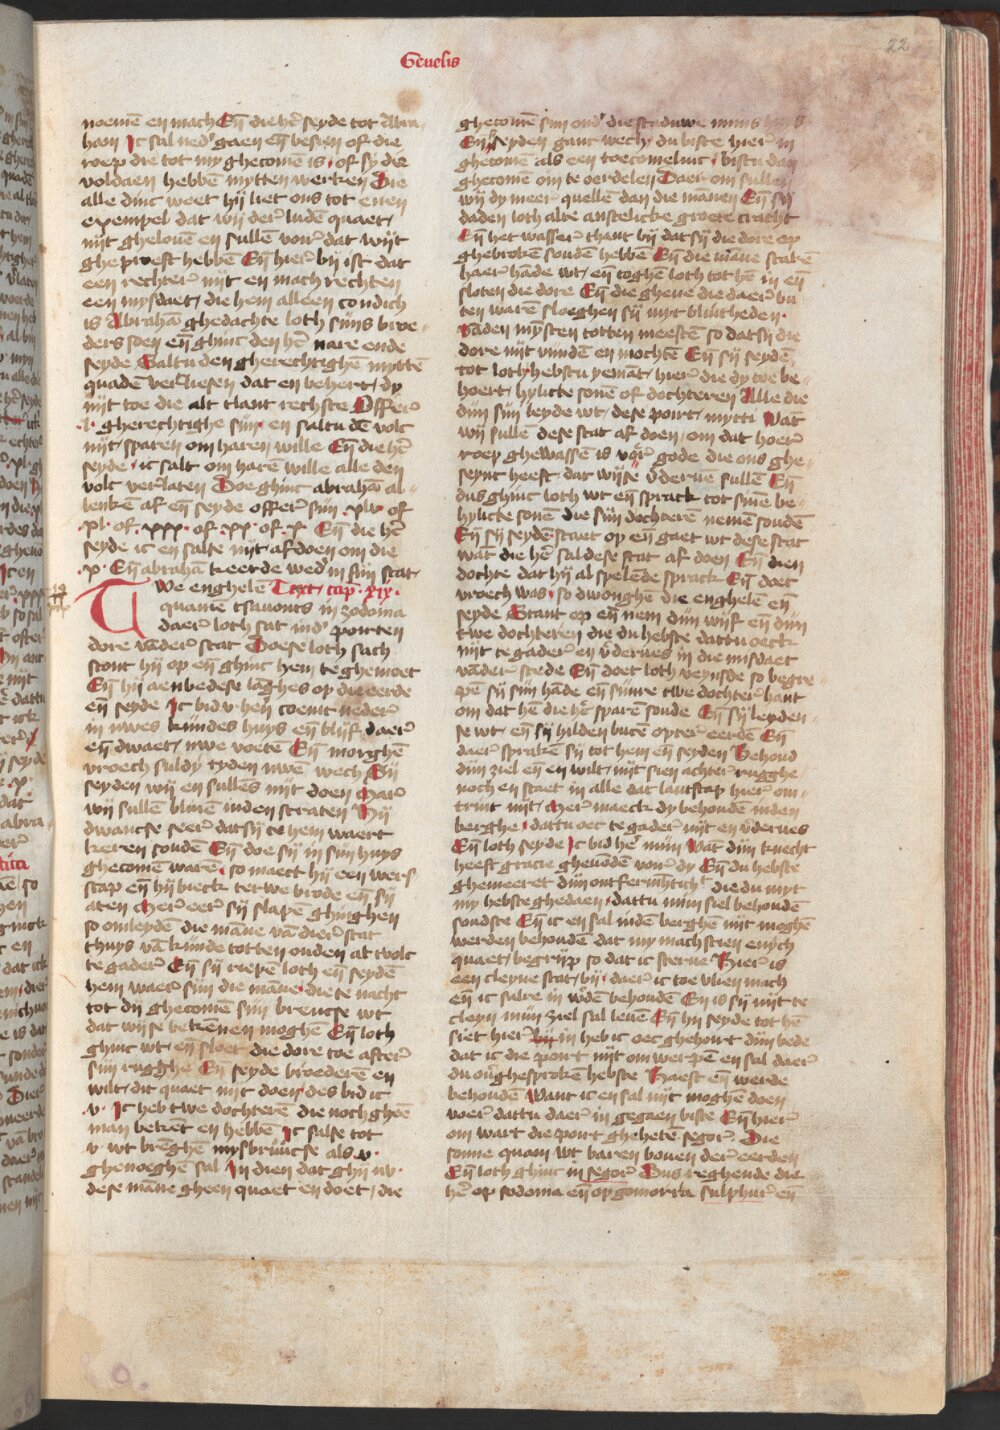 Genesis
22
noemē en mach Eñ die hē seyde tot Abra-
ham Ic sal ned' gaen eñ besien of die
roep die tot my ghecomē is of sy die
voldaen hebbē mytten werken Die
alle dinc weet hij liet ons tot enen
exempel dat wij der ludē quaet
nijt ghelouē en sullē voir dat wijt
gheproeft hebbē Eñ hier bij ist dat
een rechter nijt en mach rechten
een mysdaet die hem alleen condich
is Abrahā ghedachte loth sijns broe-
ders soen eñ ghinc den hē nare ende
seyde Saltu den gherechtighē myttē
quadē verliesen dat en behert dy
nijt toe die alt tlant rechste Offer
.l. gherechtighe sijn en saltu dē volc
nijt sparen om haren wille Eñ die hē
seyde ic salt om harē wille alle den
volt verlaten Doe ghinc abrahā al-
lenkē af eñ seyde offer sijn .xlv. of
.xl. of .xxx. of .xx. of .x. Eñ die hē
seyde ic en salse nijt afdoen om die
.x. Eñ abrahā keerde wed' in sijn stat
Twe enghelē Text cap .xix.
quamē tsauonts in zodoma
daer loth sat ind' poorten
dore vād' stat Doese loth sach
stont hij op eñ ghinc hem teghemoet
Eñ hij aenbedese lāghes op die eerde
eñ seyde Ic bid v heñ coemt neder
in uwes kindes huys eñ blijf daer
eñ dwaet uwe voete Eñ morghē
vroech suldy tyden uwē wech Sij
seyden wij en sullēs nijt doen Mar
wij sullē bliuē inden straten Hij
dwancse seer datsij te hem waert
keren soudē Eñ doe sij in sijn huys
ghecomē warē so maect hij een wert-
scap eñ hij bieck terwe brode eñ sij
aten Mer eer sij slapē ghinghen
so omleydē die māne vā dier stat
thuys vā kinde totten ouden at tvolc
te gader Eñ sij riepē loth eñ seydē
hem waer sijn die māne die te nacht
tot dij ghecomē sijn brencse wt
dat wijse bekenen moghē Eñ loth
ghinc wt eñ sloet die dore toe after
sijn rugghe Eñ seyde broederē en
wilt dit quaet nijt doen des bid ic
v. Ic heb twe dochterē die noch gheē
man bekēt en hebbē Ic salse tot
v wt brēghē mysbruucse als v
ghenoeghē sal In dien dat ghij nv
dese māne gheen quaet en doet die
ghecomē sijn ond' die scaduwe mijns huys
Eñ sij seyden ganc wech du biste hier in
ghecomē als een toecomelinc bistu dan
ghecomē om te oerdelen Daer om sullen
wij dy meer quellē dan die mānen Eñ sij
daden loth alte anstelicke groete cracht
Eñ het wasser thant bij dat sij die dore op
ghebrokē soudē hebbē Eñ die māne stakē
haer hāde wt eñ toghē loth tot hē in eñ
sloten die dore Eñ die ghene die daer bu-
ten warē sloeghen sij myt blintheden
vāden mynsten totten meestē so datsij die
dore nijt vinden en mochtē Eñ sij seydē
tot loth hebstu yemāt hier die dy toe be-
hoert hylicte sonē of dochteren Alle die
dijn sijn leyde wt dese poirt mytti Wāt
wij sullē dese stat af doen om dat hoer
roep ghewassē is voir gode die ons ghe-
seynt heeft dat wijse v̄deruē sullē Eñ
dus ghinc loth wt eñ sprack tot sinē be-
hylicte sonē die sijn dochterē nemē soudē
Eñ sij seydē staet op eñ gaet wt dese stat
wāt die hē sal dese stat af doen Eñ dien
dochte dat hij al spelēde sprack Eñ doet
vroech was so dwonghē die enghelē eñ
seyde Stant op eñ nem dijn wijf eñ dijn
twe dochteren die du hebste dattu oeck
nijt te gader en v̄derues in die misdaet
vād' stede Eñ doet loth veynsde so begre-
pē sij sijn hāde eñ sijnre twe dochter hant
om dat hē die hē sparē soude Eñ sij leyden-
se wt eñ sij hilden butē opter eerdē Eñ
daer sprakē sij tot hem eñ seyden Behoud
dijn ziel eñ en wilt nijt sien achter rugghe
noch en staet in alle dat lantscap hier om-
trint nijt Mer maeck dy behoudē inden
berghe dattu oec te gader nijt en v̄derues
Eñ loth seyde Ic bid hē mijn Wāt dijn knecht
heeft gracie gheuōdē voir dy Eñ du hebste
ghemeeret dijn ontfermhtich' die du myt
my hebste ghedaen dattu mijn siel behoudē
soudste Eñ ic en sal indē berghē nijt moghē
werden behoudē dat my mach stien enych
quaet begrijp so dat ic sterue Hier is
een cleyne stat bij daer ic toe vlien mach
eñ ic salre in w'dē behoudē En is sij nijt te
cleyn mijn ziel sal leuē Eñ hij seyde tot hē
siet hier in heb ic oec ghehoirt dijn bede
dat ic die poirt nijt omwerpē en sal daer
du ou'ghesprokē hebste Haest eñ werde
behoudē Want ic en sal nijt moghē doen
voer dattu daer in gegaen biste Eñ hier
om wart die poirt ghehetē segor Die
sonne quam wt baren bouen der eerden
Eñ loth ghinc in segor Dus reghende die
hē op sodoma eñ op gomorra sulphur eñ